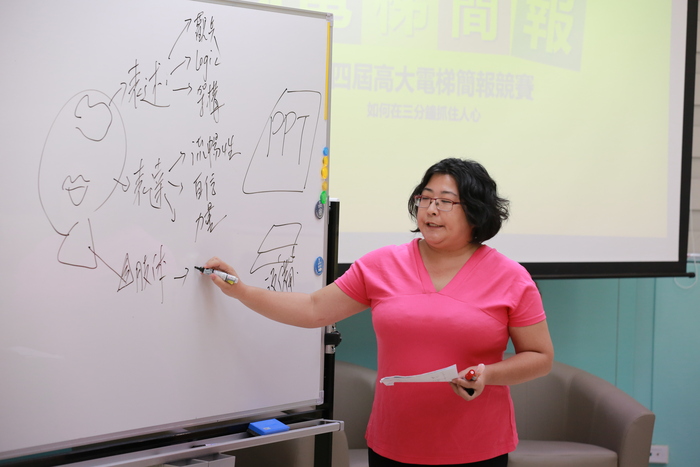 電梯簡報
四屆高大電梯簡報競賽
如何在三分鐘抓住人心
表述
觀點
logic
架構
PPT
表達
流暢性
自信
力量
肢体